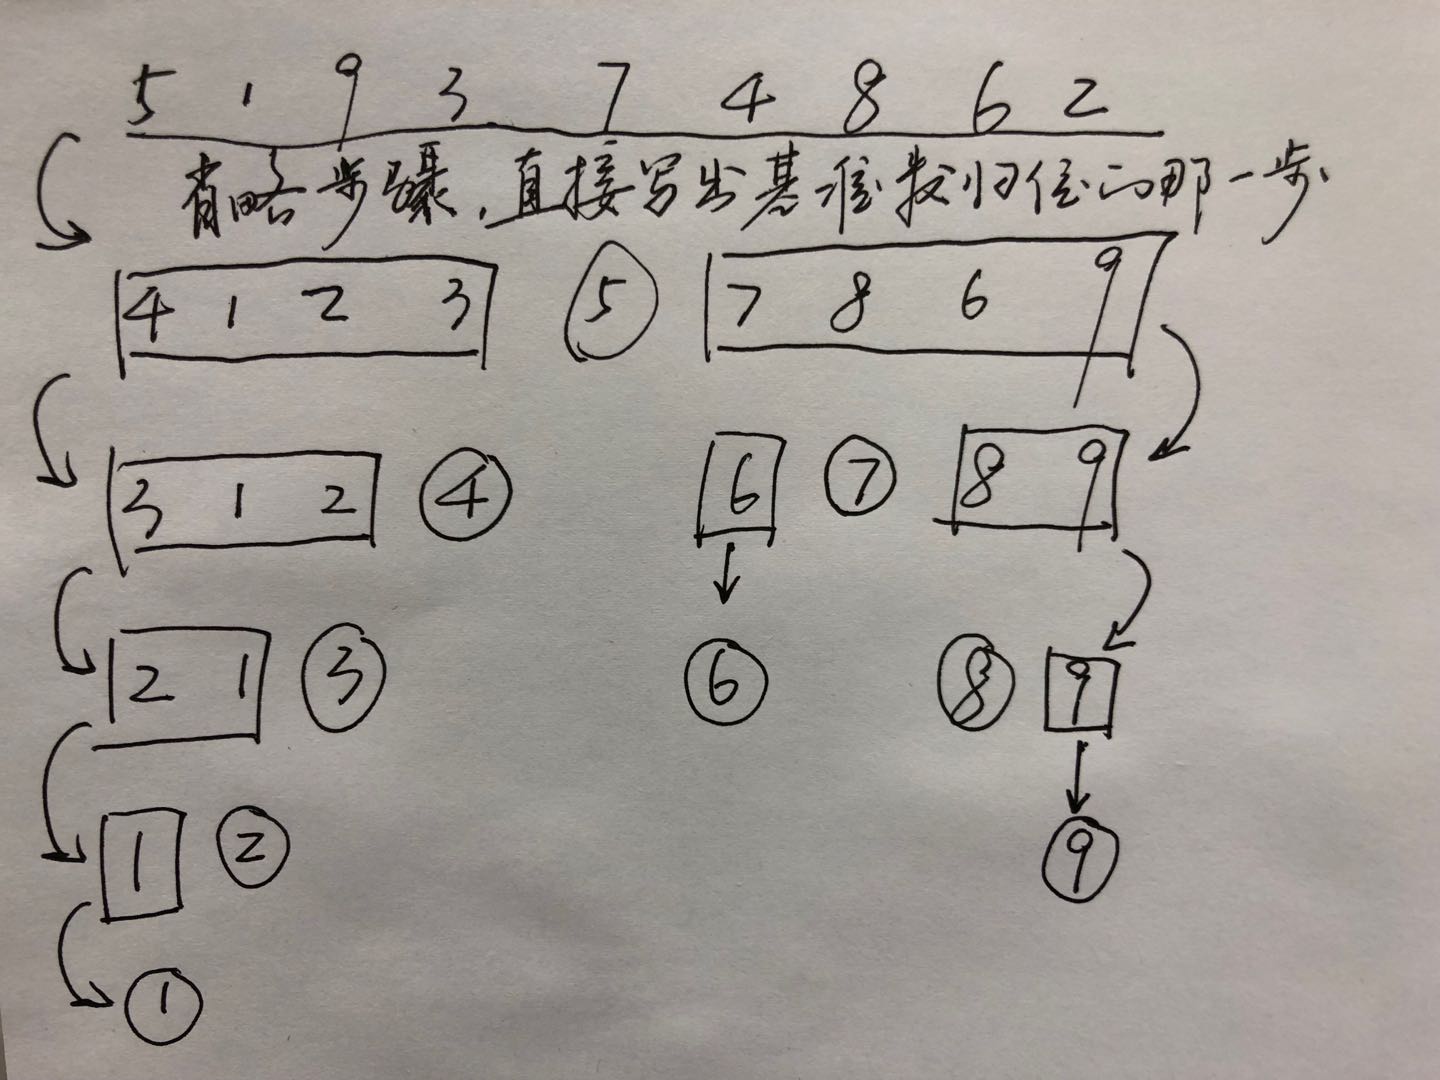 5 1 9 3 7 4 8 6 2
省略步骤,直接写出基准数归位的那一步.
4 1 2 3 5 7 8 6 9
3 1 2 4 6 7 8 9
2 1 3 6 8 9
1 2 9
1